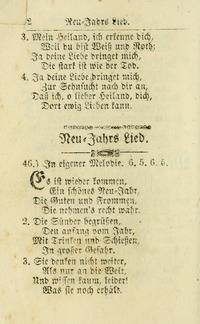 2 Neu-Jahrs Lied.
3. Mein Heiland, ich erkenne dich,
Weil du bist Weiß und Roth;
Ja deine Liebe dringet mich,
Die stark ist wie der Tod.
4. Ja deine Liebe dringet mich,
Zur Sehnsucht nach dir an,
Daß ich, o lieber Heiland, dich,
Dort ewig Lieben kann.
Neu-Jahrs Lied.
46.) In eigener Melodie. 6, 5, 6, 5.
Es ist wieder kommen,
Ein schönes Neu-Jahr,
Die Guten und Frommen,
Die nehmen's recht wahr.
2. Die Sünder begrüßen,
Den anfang vom Jahr,
Mit Trinken und Schießen,
In großer Gefahr.
3. Sie denken nicht weiter,
Als nur an die Welt,
Und wissen kaum, leider!
Was sie noch erhält.